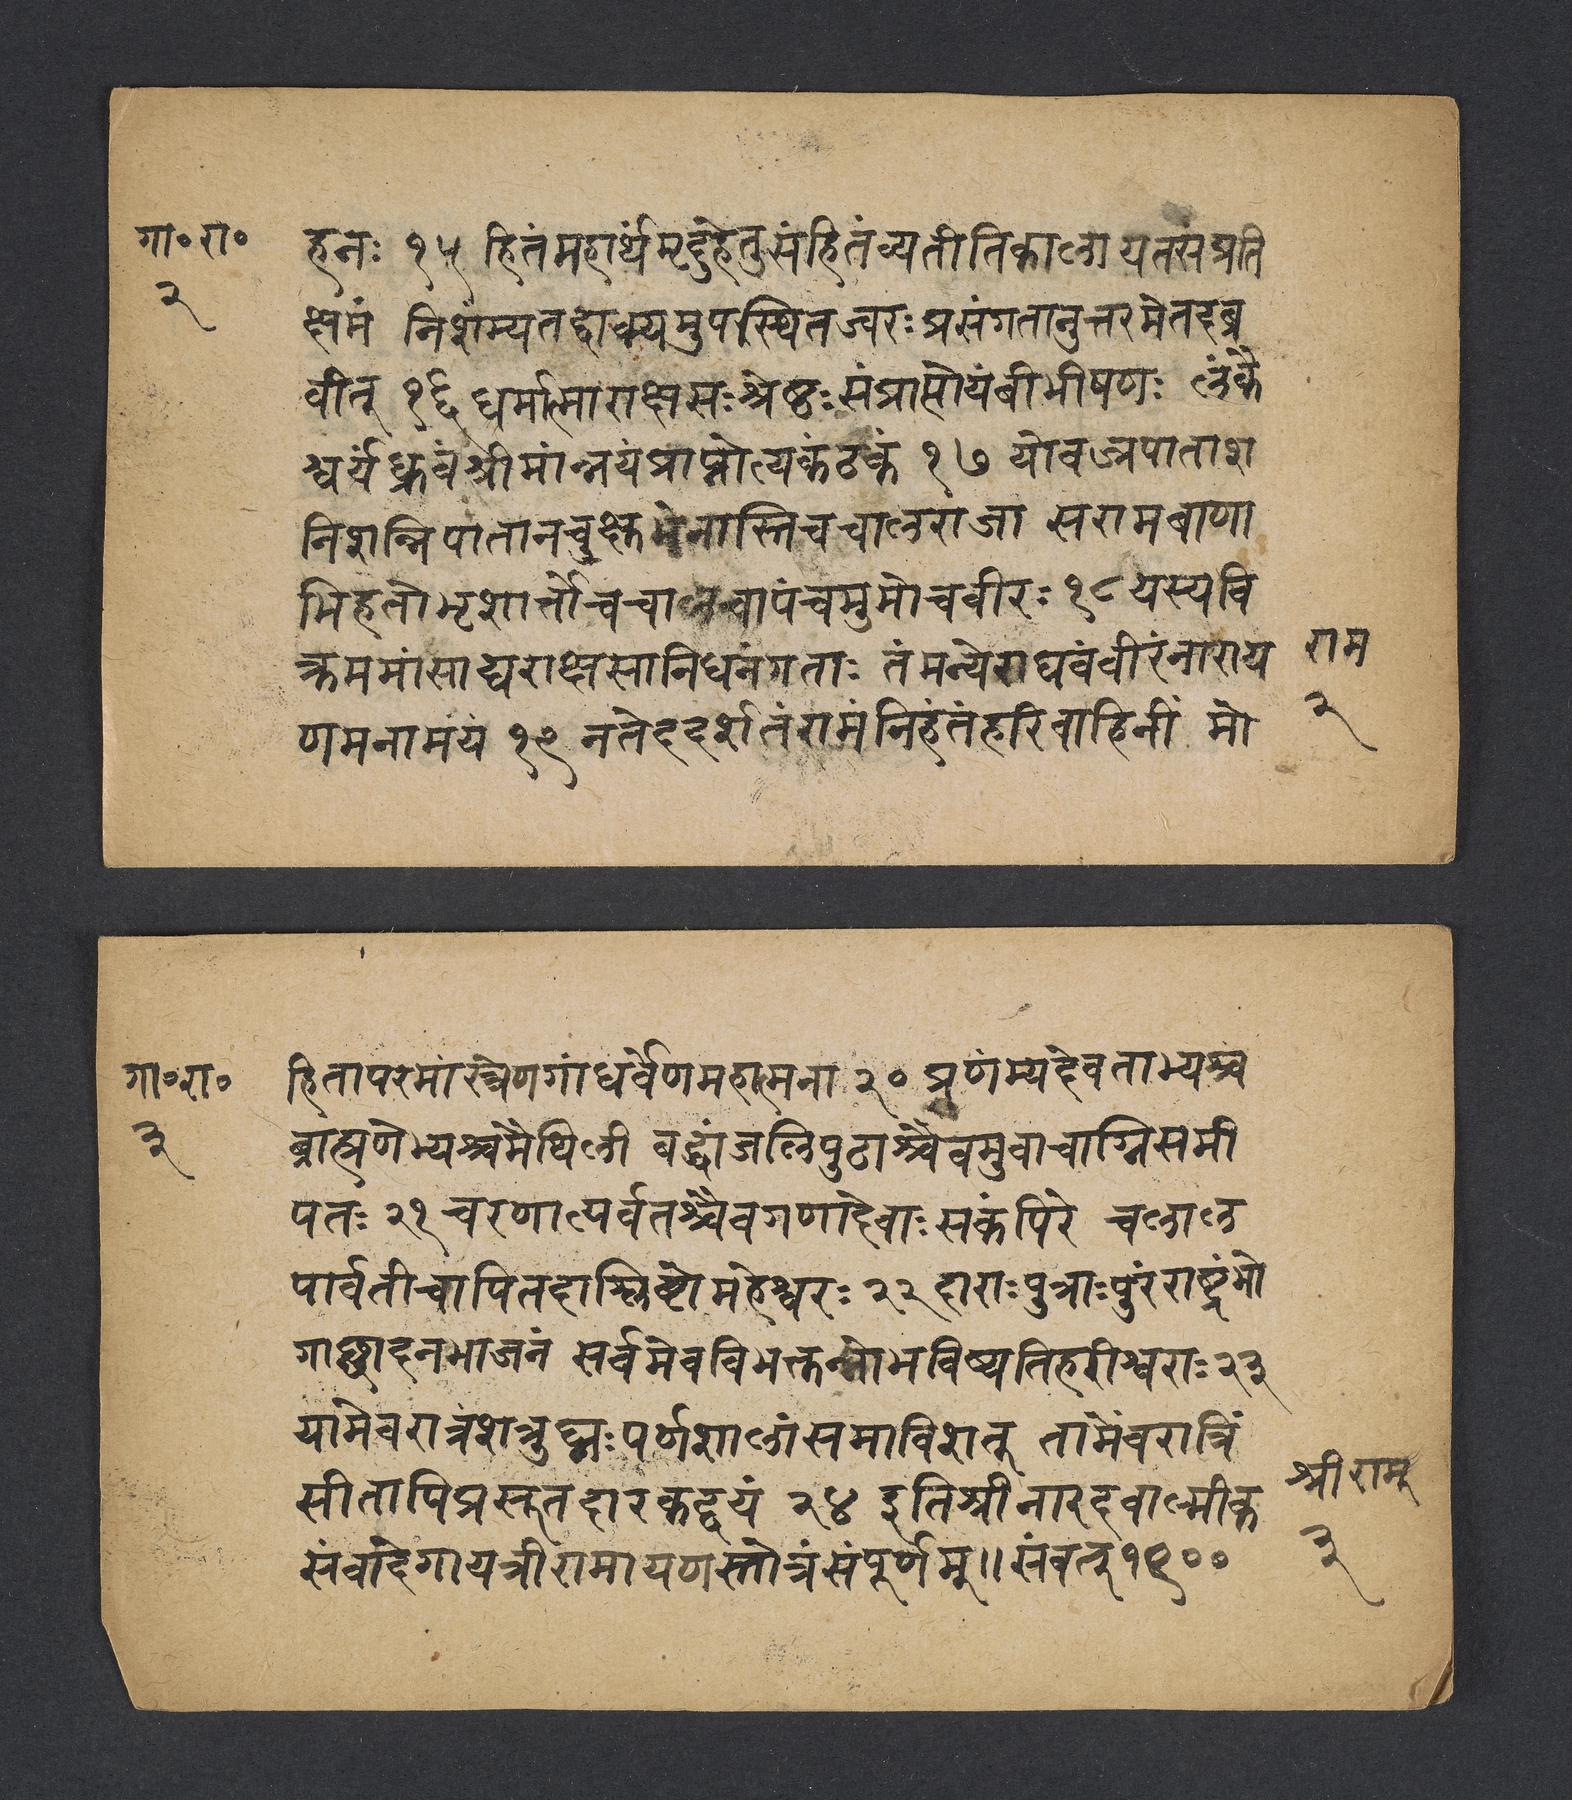 गा॰रा॰
२
हनः १५ हितंमहार्थंमृदुंहेतुसंहितंव्यतीतिकालायतसंप्रति
क्षमं निशंम्यतद्वाक्यमुपस्थितज्वरःप्रसंगतानुत्तरमेतदब्र
वीत् १६ धर्मात्माराक्षसःश्रेष्ठःसंप्राप्तोयंबीभीषणः लंकै
श्वर्यंध्रुवंश्रीमांन्नयंप्राप्नोत्यकंठकं १७ योवज्रपाताश
निशन्निपातानचुक्ष्तभेनास्तिचचालराजा सरामबाणा
भिहतोभृशार्त्तोचचालचापंचमुमोचवीरः १८ यस्यवि
क्रममांसाद्यराक्षसानिधनंगताः तंमन्येराघवंवीरंनाराय
णमनामयं १९ नतेददर्शतंरामंनिहंतंहरिवाहिनीं मो
राम
२
गा॰रा॰
३
हितापरमांस्त्रेणगांधर्वेणमहात्मना २० प्रणंम्यदेवताभ्यश्च
ब्राह्मणेभ्यश्चमैथिली बद्धांजलिपुठाश्चैवमुवाचाग्निसमी
पतः २१ चरणात्पर्वतश्चैवगणादेवाःसकंपिरे चलाल
पार्वतीचापितदाश्लिष्टोमहेश्वरः २२ दाराःपुत्राःपुरंराष्ट्रंभो
गाछादनभाजनं सर्वमेवविभक्तन्नोभविष्यतिहरीश्वराः २३
यामेवरात्रंशत्रुघ्नःपर्णशालांसमाविशत् तांमेंवरात्रिं
सीतापिप्रसूतदारकद्वयं २४ इतिश्रीनारदवाल्मीक
संवादेगायत्रीरामायणस्तोत्रंसंपूर्णम्॥ संवत् १९००
श्रीराम्
३